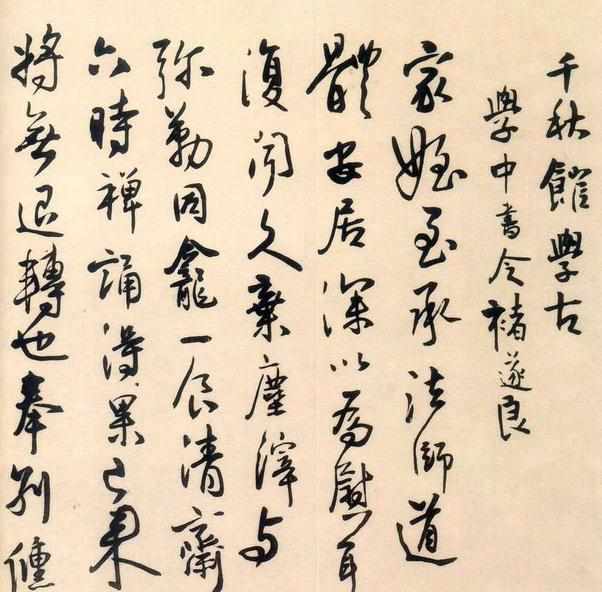 千秋館學古
學中書令褚遂良
家姪至承法師道
體安居深以為慰耳
復聞久棄塵滓与
弥勒同龕一食清齋
六時禅誦得果已來
将無退轉也奉別儵